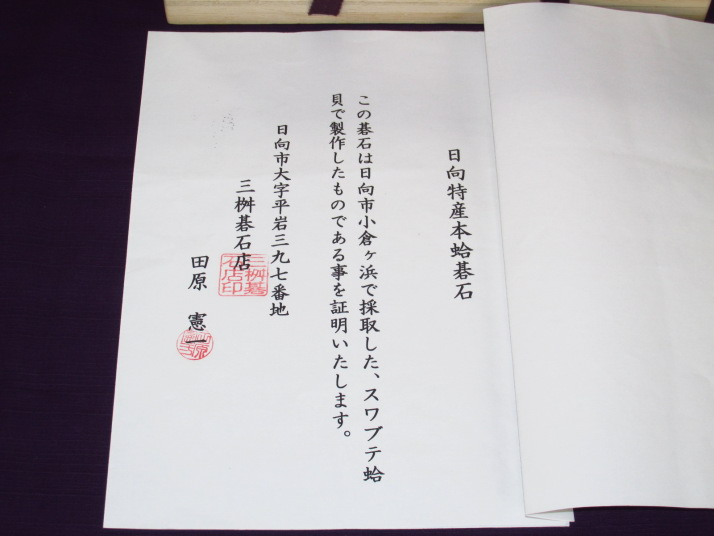 日向特産本蛤碁石
この碁石は日向市小倉ヶ浜で採取した、スワブテ蛤
貝で製作したものである事を証明いたします。
日向市大字平岩三九七番地
三桝碁石店
三桝碁
石店印
田原 憲一